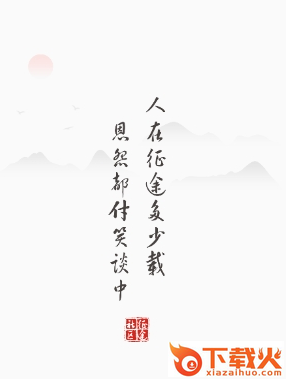 人在征途多少载
恩怨都付笑谈中
征途
社区
下载火
xiazaihuo.com